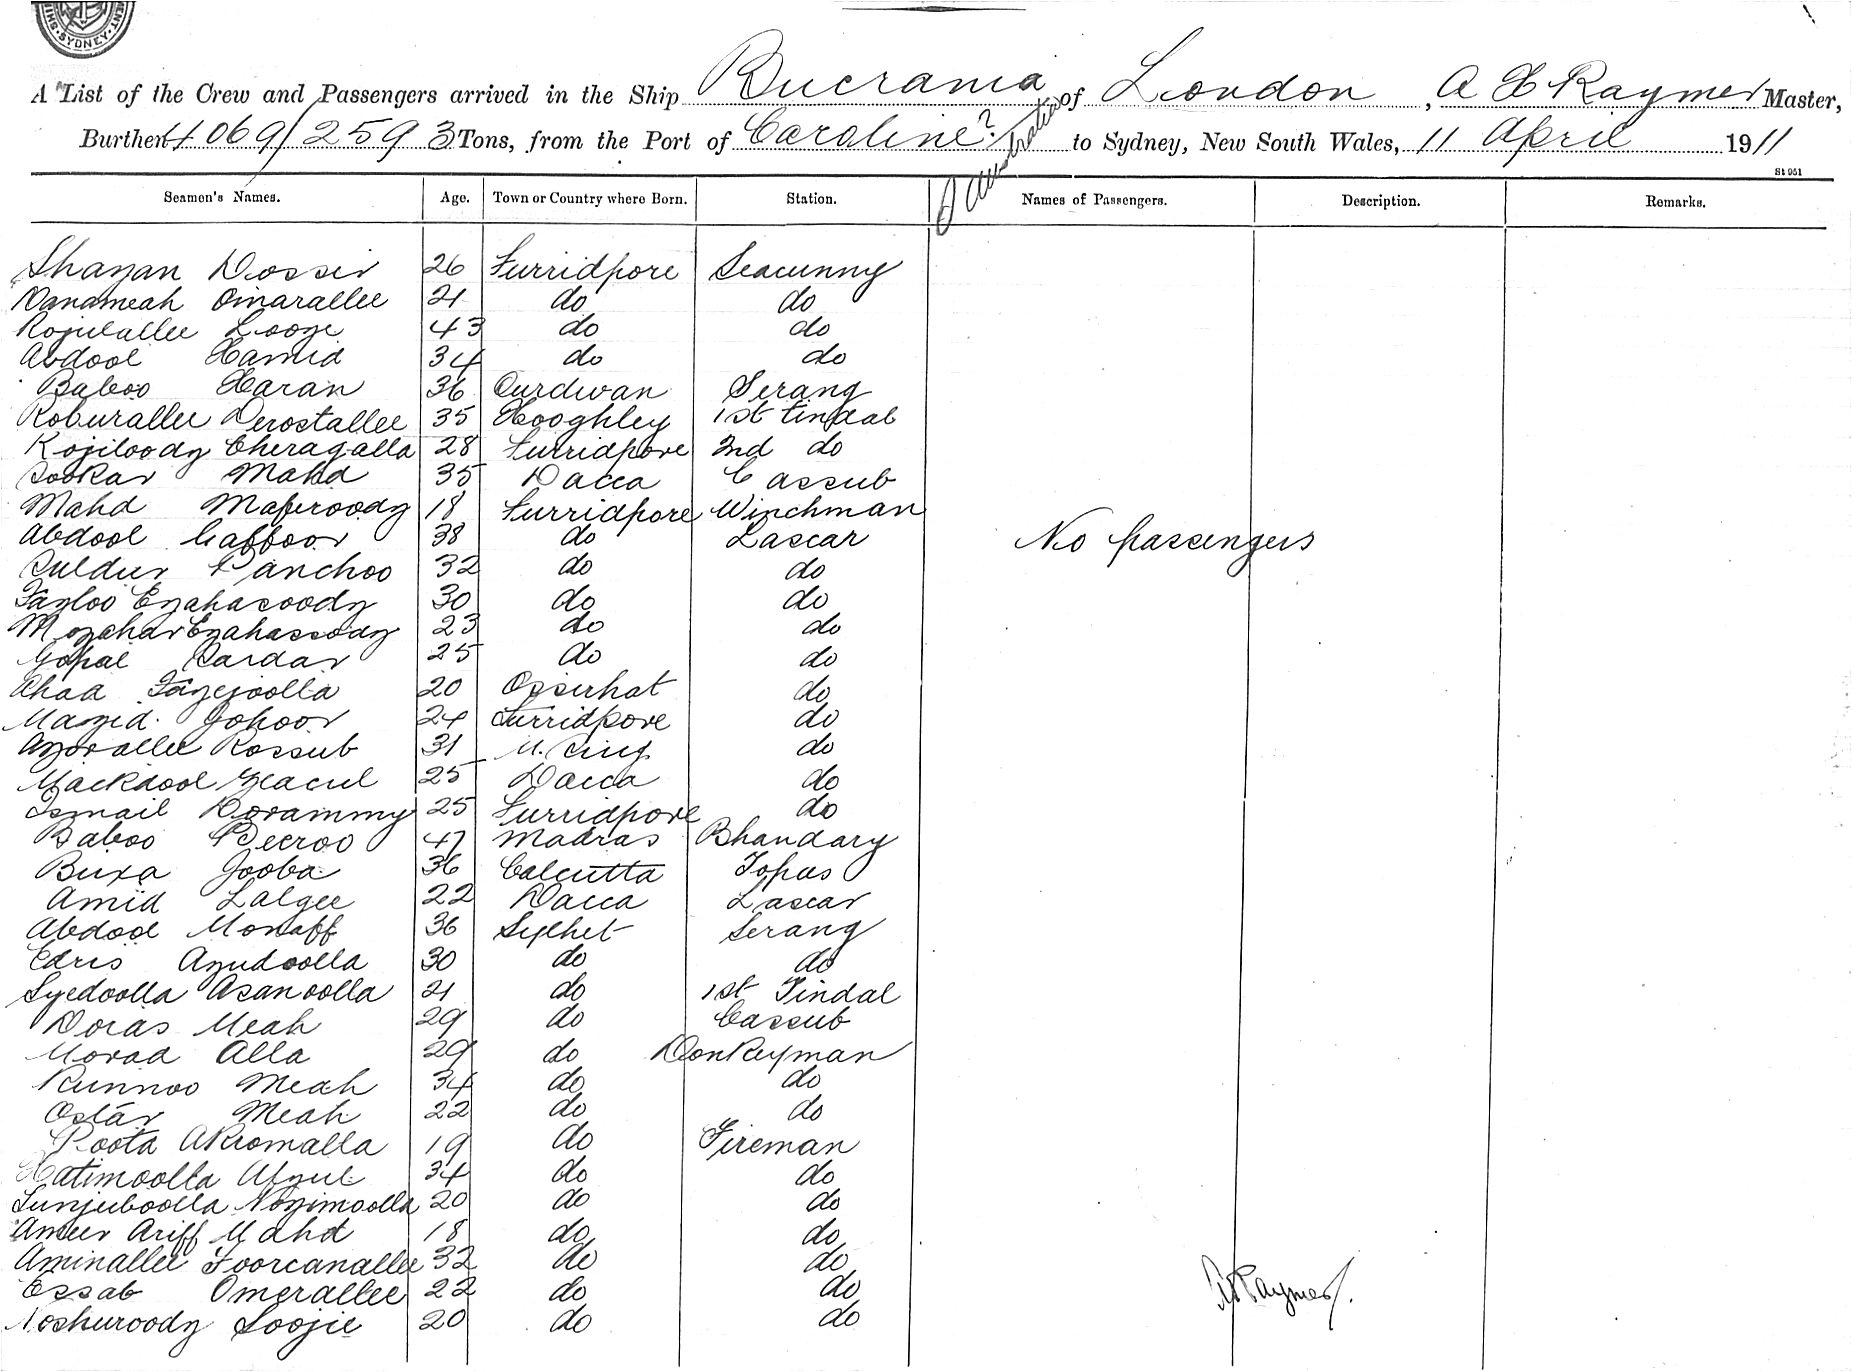 SYDNEY
A List of the Crew and Passengers arrived in the Ship Bucrania of London, A H Raymer Master,
Burthen 4069/2593 Tons, from the Port of Caroline? to Sydney, New South Wales, 11 April 1911
St 951
Seamen's Names. Age. Town or Country where Born. Station. Names of Passengers. Description. Remarks.
Shayan Dossir 26 Furridpore Seacunny
Danameah Omarallee 21 do do
Rojulallee Looze 43 do do
Abdool Hamid 34 do do
Baboo Haran 36 Curdwan Serang
Roburallee Derostallee 35 Hooghley 1st tindal
Kojiloody Cheragalla 28 Furridpore 2nd do
Sookar Mahd 35 Dacca Cassub
Mahd Maferoody 18 Furridpore Winchman
Abdool Gaffoor 38 do Lascar No passengers
Suldur Panchoo 32 do do
Fazloo Ezahasoody 30 do do
Mozahar Ezahassody 23 do do
Gopal Sardar 25 do do
Ahad Fazejoolla 20 Osserhat do
Mazid Gohoor 24 Furridpore do
Azorallee Rossub 31 M. Sing do
Mackdool Geacul 25 Dacca do
Ismail Dorammy 25 Furridpore do
Baboo Peeroo 47 Madras Bhandary
Buxa Jooba 36 Calcutta Topas
Amid Lalgee 22 Dacca Lascar
Abdool Monaff 36 Sylhet Serang
Edris Azudoolla 30 do do
Syedoolla Asanoolla 21 do 1st Tindal
Doras Meah 29 do Cassub
Morad Alla 29 do Donkeyman
Runnoo Meah 34 do do
Ostar Meah 22 do do
Roota Akromalla 19 do Fireman
Hatimoolla Afzul 34 do do
Sunjuboolla Nozimoolla 20 do do
Ameer Ariff Mahd 18 do do
Aminallee Foorcanallee 32 do do
Essab Omerallee 22 do do
A H Raymer
Noshuroody Soojie 20 do do